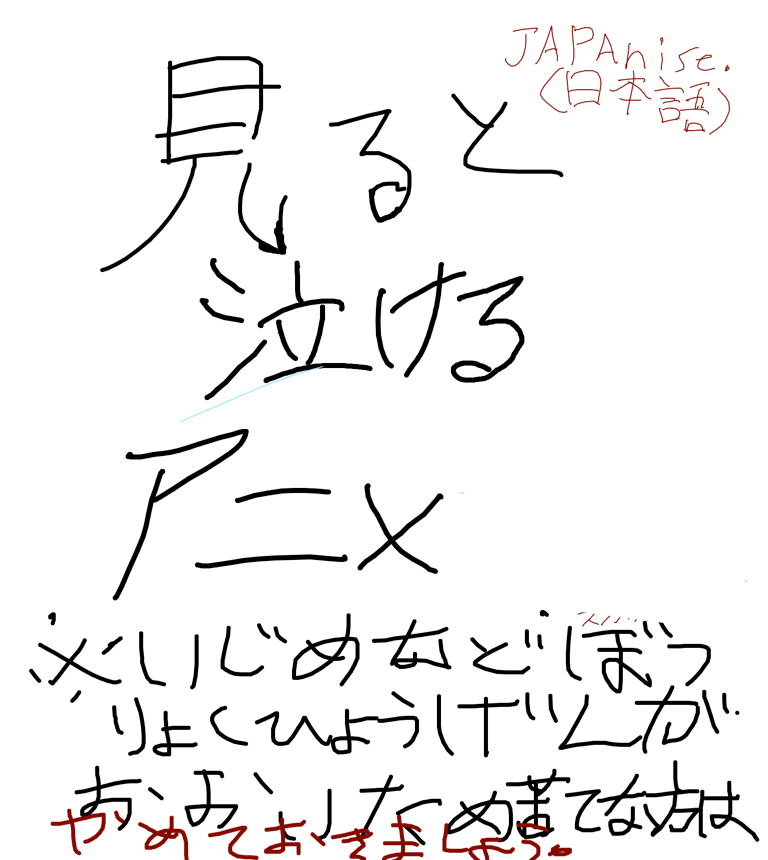 JAPAnise.
(日本語)
見ると
泣ける
アニメ
※いじめなどぼうっ
りょくひょうげんが
おおいため苦てな方は
やめておきましょう。